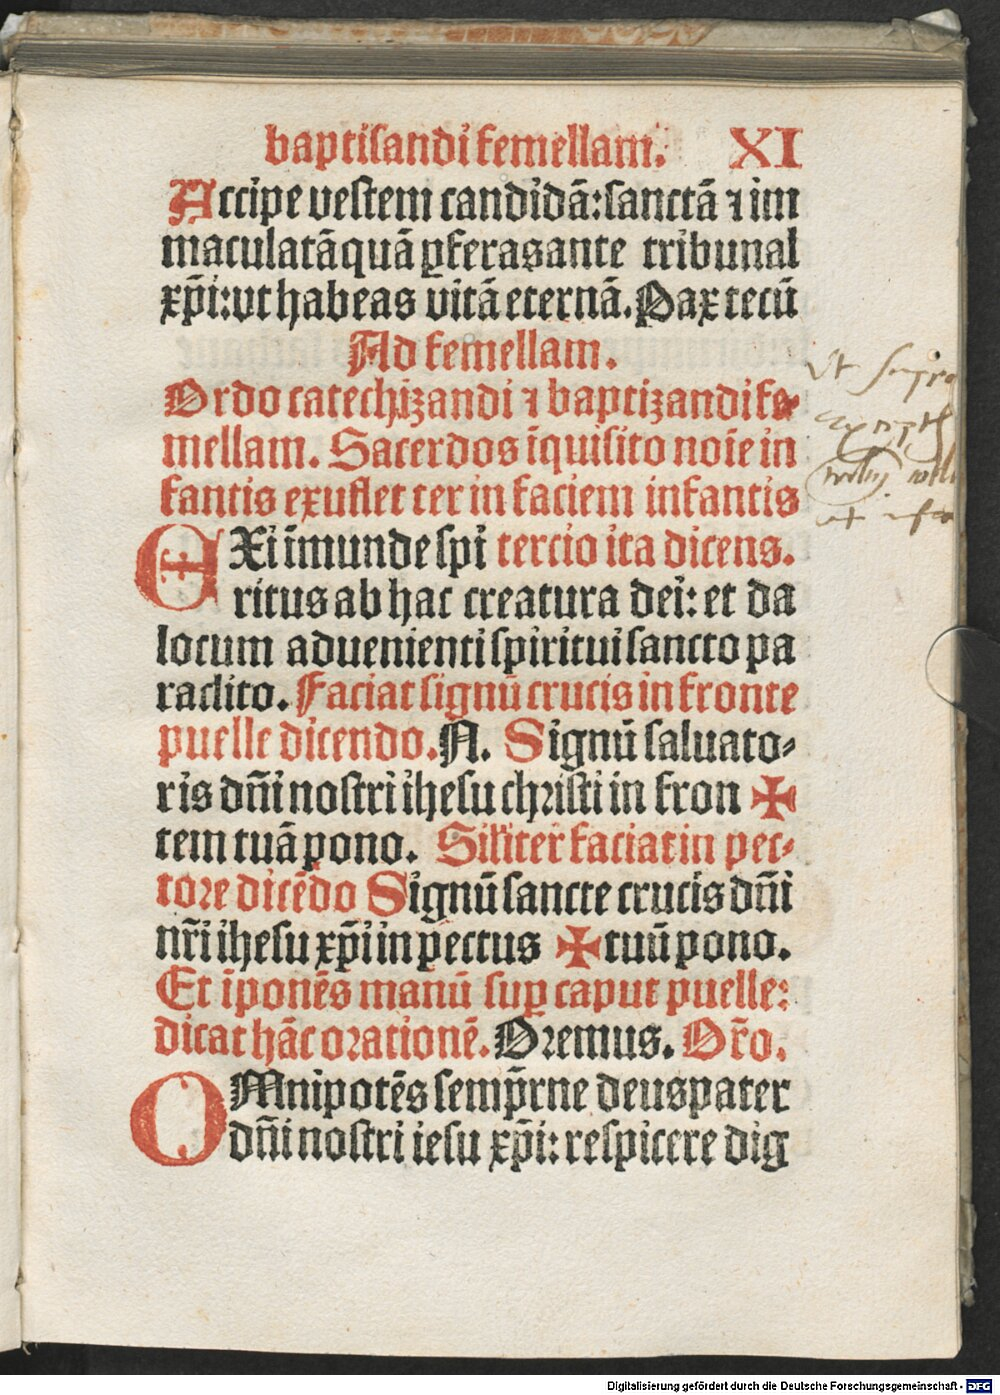 baptisandi femellam. XI
Accipe vestem candidā: sanctā ⁊ im
maculatā quā ꝑferas ante tribunal
xp̄i: vt habeas vitā eternā. Pax tecū
Ad femellam.
Ordo catechizandi ⁊ baptizandi fe⸗
mellam. Sacerdos īquisito noīe in
fantis exuflet ter in faciem infantis
EXi īmunde spi tercio ita dicens.
ritus ab hac creatura dei: et da
locum aduenienti spiritui sancto pa
raclito. Faciat signū crucis in fronte
puelle dicendo. N. Signū saluato⸗
ris dn̄i nostri ihesu christi in fron ✠
tem tuā pono. Silīter faciat in pec⸗
tore dicēdo Signū sancte crucis dn̄i
nr̄i ihesu xp̄i in pectus ✠ tuū pono.
Et īponēs manū suꝑ caput puelle:
dicat hāc orationē. Oremus. Or̄o.
OMnipotēs semp̄rne deus pater
dn̄i nostri iesu xp̄i: respicere dig
Vt supra
Digitalisierung gefördert durch die Deutsche Forschungsgemeinschaft - DFG